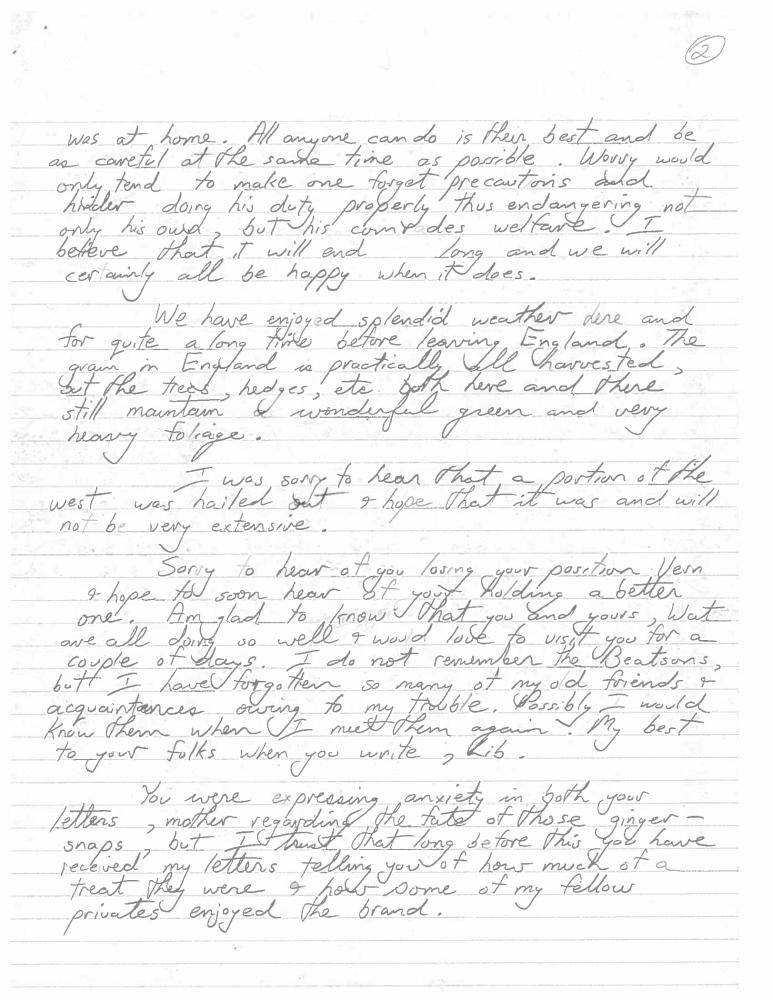 2
was at home. All anyone can do is their best and be
as careful at the same time as possible. Worry would
only tend to make one forget precautions and
hinder doing his duty properly thus endangering not
only his own, but his comrades welfare. I
believe that it will end long and we will
certainly all be happy when it does.
We have enjoyed splendid weather here and
for quite a long time before leaving England. The
grain in England is practically all harvested,
but the trees, hedges, etc. both here and there
still maintain a wonderful green and very
heavy foliage.
I was sorry to hear that a portion of the
west was hailed out & hope that it was and will
not be very extensive.
Sorry to hear of you losing your position Vern
& hope to soon hear of your holding a better
one. Am glad to know that you and yours, Wat
are all doing so well & would love to visit you for a
couple of days. I do not remember the Beatsons,
but I have forgotten so many of my old friends &
acquaintances owing to my trouble. Possibly I would
know them when I meet them again. My best
to your folks when you write, Lib.
You were expressing anxiety in both your
letters, mother regarding the fate of those ginger-
snaps, but I trust that long before this you have
received my letters telling you of how much of a
treat they were & how some of my fellow
privates enjoyed the brand.